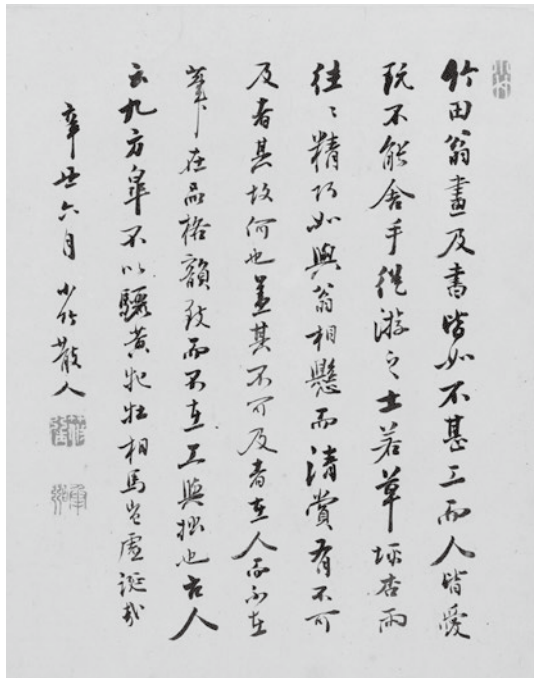 竹田翁畫及書皆如不甚工而人皆愛
玩不能舍手從游之士若草坪杏雨
往〻精巧如與翁相懸而清賞有不可
及者其故何也盖其不可及者在人而不在
筆在品格韻致而不在工與拙也古人
云九方皐不以驪黄牝牡相馬豈虚誕哉
辛丑六月 小竹散人